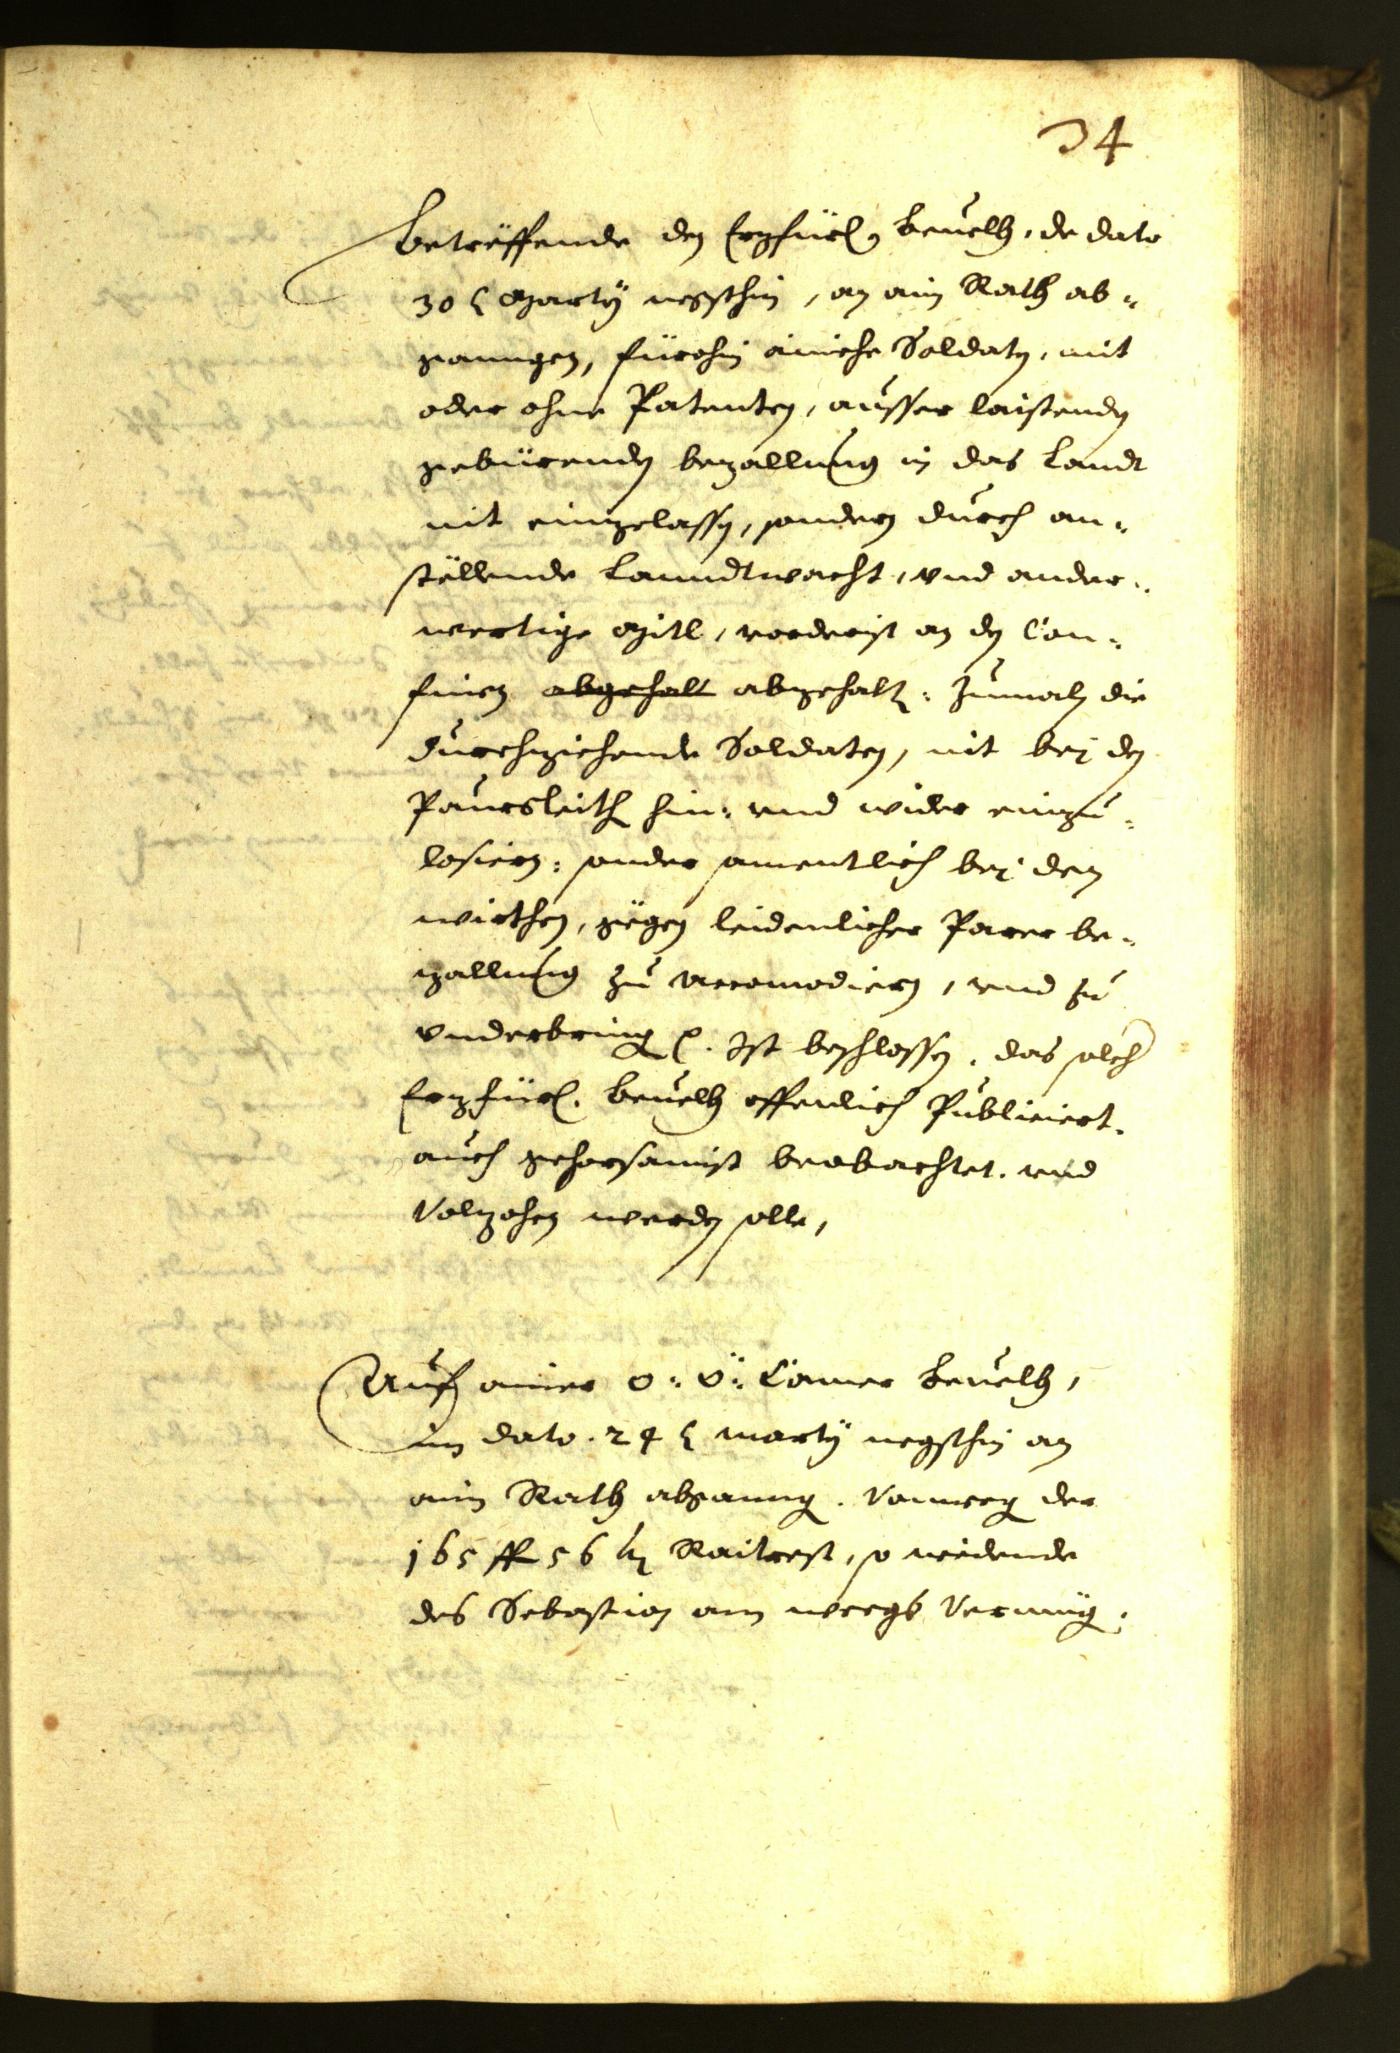 34
Betreffende den Erzfürl. Beuelh, de dato
30 Marty negsthin, an ain Rath ab„
ganngen, fürohin ainiche Soldaten, mit
oder ohne Patenten, ausser laistenden
gebürenden bezallung in das Landt
nit eingelassen, sondern durch an„
stellende Lanndtwacht, vnd ander„
wertige Mitl, vorderist an den Con„
finen abgehalt abgehalten: Zumaln die
durchziehende Soldaten, nit bej den
Paursleith hin: vnd wider einzu„
losiern: sonder samentlich bej den
wirthen, gegen leidenlicher Parer be„
zallung zu accomodiern, vnd zu
vnderbringen. Ist beschlossen, das solch
Erzfürl. Beuelh offenlich Publiciert,
auch gehorsamist beobachtet, vnd
Volzohen werden solle,
Auf ainer O: Ö: Camer Beuelh,
im dato. 24 marty negsthin an
ain Rath abganng. Vonweg der
165 f 56 kr Raitrest, so weilende
des Sebastian am weegs Vermüg„